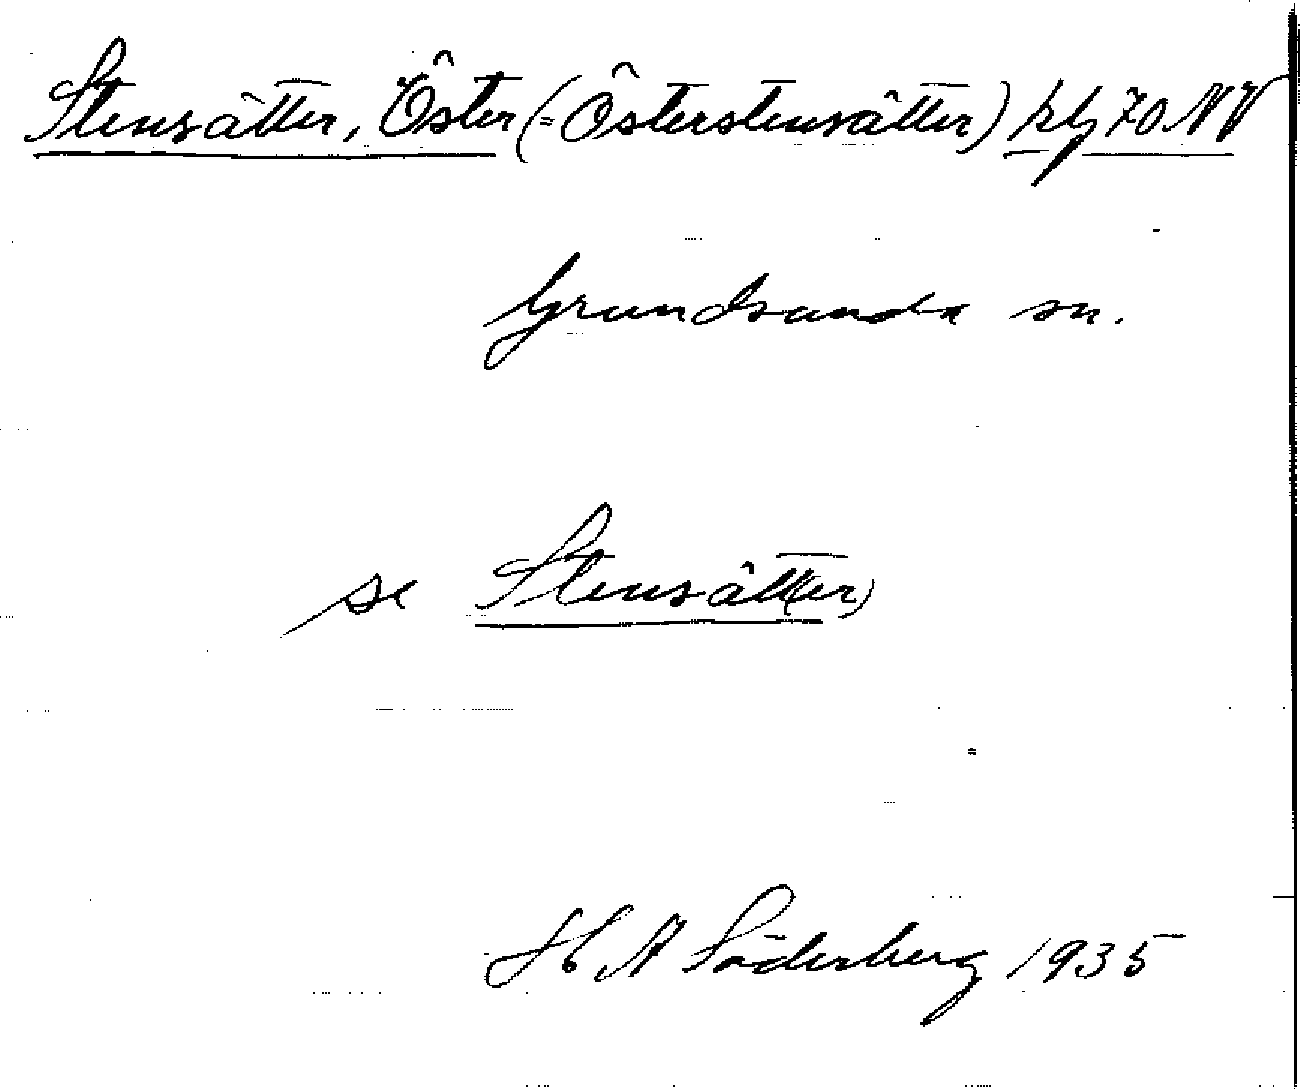 Stensätter, Öster (= Österstensätter) kbl 70 NV
Grundsunda sn.
se Stensätt(er)
H A Söderberg 1935